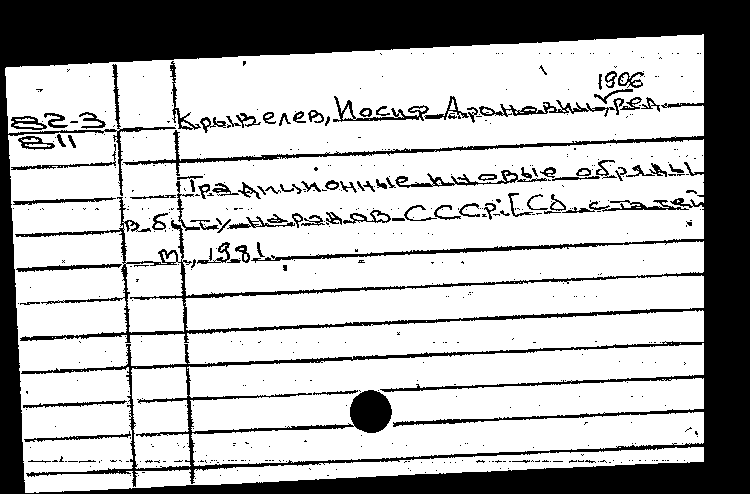 1906
82-3 Крывелев, Иосиф Аронович, ред.
811
Традиционные и новые обряды
в быту народов СССР: [Сб. статей
м., 1981.